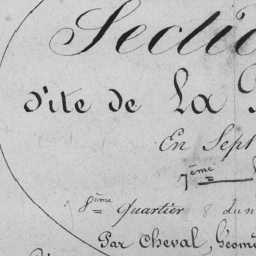 Sectio
dite de La
En Sept
7ème
8ème Quartier
Par Cheval, Géom